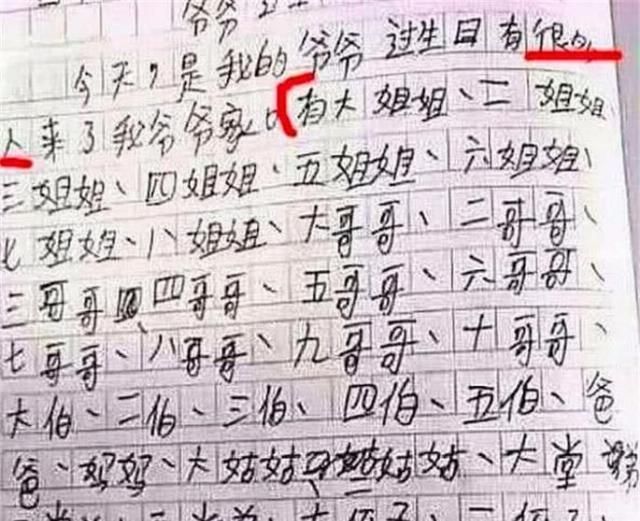 爷爷
今天,是我的爷爷过生日有很多
人来了我爷爷家有大姐姐、二姐姐
三姐姐、四姐姐、五姐姐、六姐姐、
七姐姐、八姐姐、大哥哥、二哥哥、
三哥哥四哥哥、五哥哥、六哥哥、
七哥哥、八哥哥、九哥哥、十哥哥、
大伯、二伯、三伯、四伯、五伯、爸
爸、妈妈、大姑姑姑姑、大堂